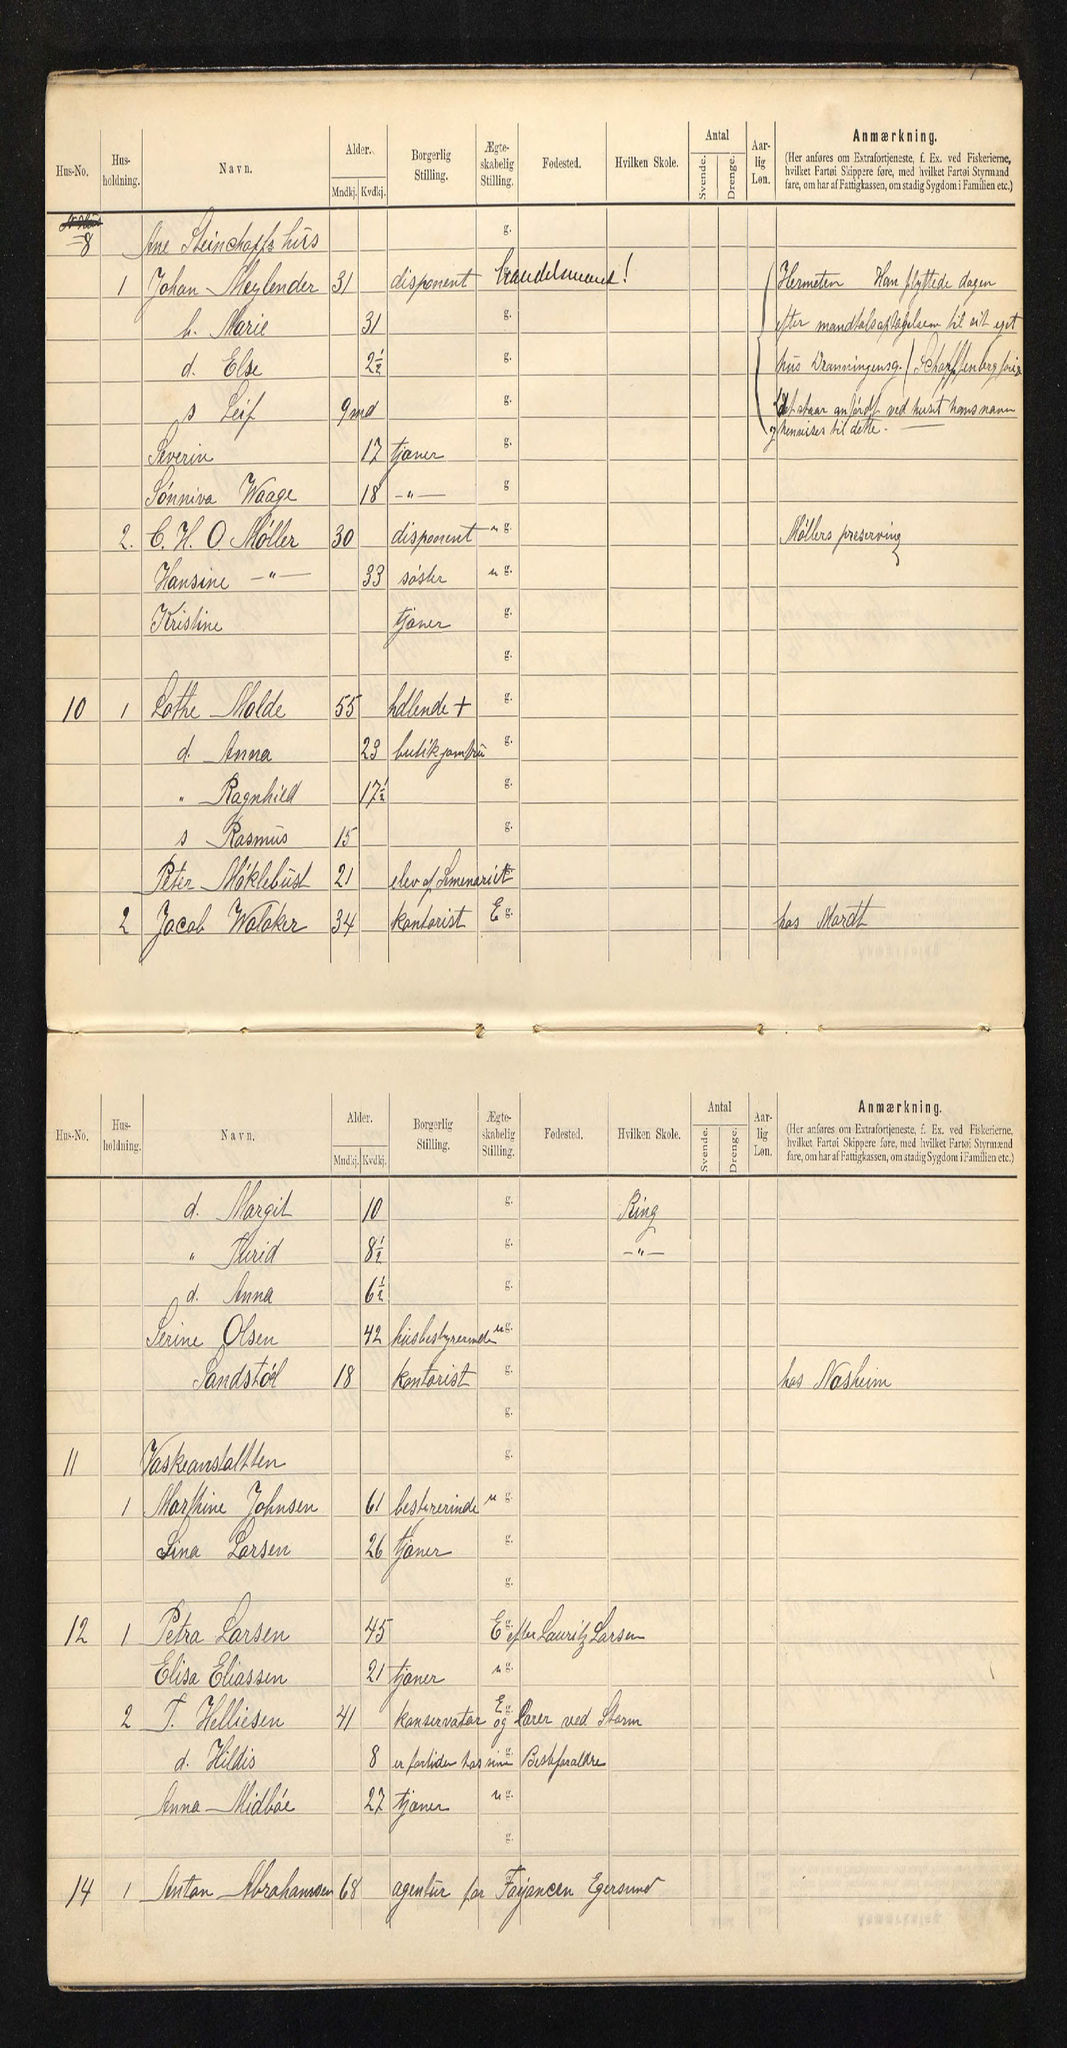 Hus-No. Hus-holdning. Navn. Alder. Mndkj. Kvdkj. Borgerlig Stilling. Ægte-skabelig Stilling. Fødested. Hvilken Skole. Antal Svende. Drenge. Aar-lig Løn. Anmærkning.
(Her anføres om Extrafortjeneste, f. Ex. ved Fiskerierne,
hvilket Fartøi Skippere føre, med hvilket Fartøi Styrmænd
fare, om har af Fattigkassen, om stadig Sygdom i Familien etc.)
8 Ane Steinchaffs hus g.
1 Johan Meylender 31 disponent g. handelsmand! Hermeten Han flyttede dagen
h. Marie 31 g. efter mandtalsoptagelsen til sit eget
d. Else 2½ g. hus Dronningensg.
s Leif 9 md g. Det staar anført ved huset hans navn
Severin 17 tjener g. henvises til dette.
Sønniva Waage 18 -"- g
2. C. H. O. Møller 30 disponent u g. Møllers preserving
Hansine -"- 33 søster u g.
Kristine tjener g.
g.
10 1 Lothe Molde 55 hdlende + g.
d. Anna 23 butikjomfru g.
" Ragnhild 17½ g.
s Rasmus 15 g.
Peter Møklebust 21 elev af Semenariet
2 Jacob Walaker 34 kontorist E g. hos Mardt
Hus-No. Hus-holdning. Navn. Alder. Mndkj. Kvdkj. Borgerlig Stilling. Ægte-skabelig Stilling. Fødested. Hvilken Skole. Antal Svende. Drenge. Aar-lig Løn. Anmærkning.
(Her anføres om Extrafortjeneste, f. Ex. ved Fiskerierne,
hvilket Fartøi Skippere føre, med hvilket Fartøi Styrmænd
fare, om har af Fattigkassen, om stadig Sygdom i Familien etc.)
d. Margit 10 g. Ring
" Thrid 8½ g. -"-
d. Anna 6½ g.
Serine Olsen 42 husbestyrerinde u g.
Sandstøl 18 kontorist g. hos Næsheim
g.
11 Vaskeanstaltten g.
1 Marthine Johnsen 61 bestyrerinde u g.
Lina Larsen 26 tjener g.
g.
12 1 Petra Larsen 45 E g. efter Lauritz Larsen
Elisa Eliassen 21 tjener u g.
2 T. Helliesen 41 konservator E g. og Lærer ved Storm
d. Hildis 8 er fortiden hos sine g. Bestforældre
Anna Midbøe 27 tjener u g.
g.
14 1 Anton Abrahamsen 68 agentur for Fayancen Egersund